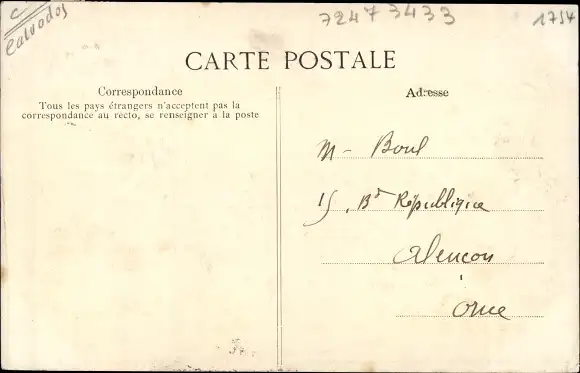 C
Calvados
7247 3433
1754
CARTE POSTALE
Correspondance
Tous les pays étrangers n'acceptent pas la
correspondance au recto, se renseigner à la poste
Adresse
M - Boul
15, Bd République
Alençon
Orne